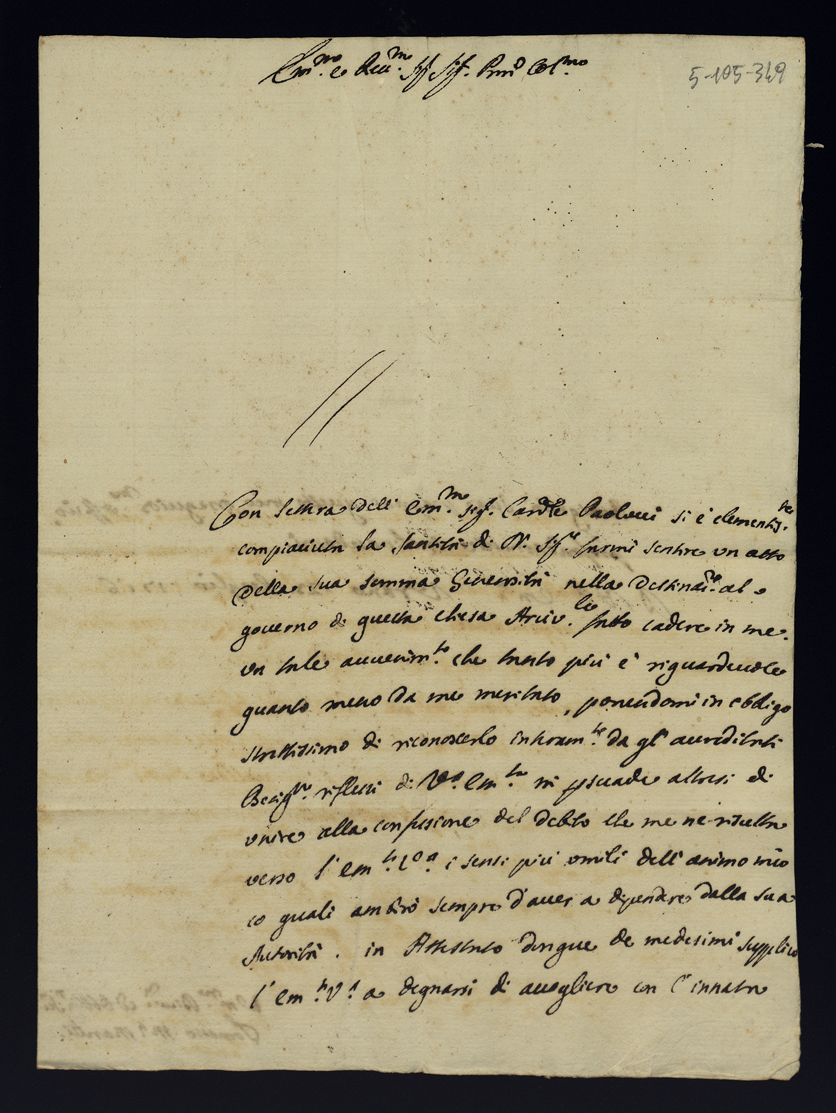 Em.mo e Rev.mo Sig.r Sig.r Pron Col.mo
5-105-349
Con lettera dell' Em.mo sig.r Card.le Paolucci si è clementis.te
compiaciuta la Santità di N. Sig.re farmi sentire un atto
della sua somma Generosità nella destinaz.ne al
governo di questa chiesa Arciv.le fatto cadere in me.
un tale avvenim.to che tanto più è riguardevole
quanto meno da me meritato, ponendomi in obligo
strettissimo di riconoscerlo interam.te da gl' accreditati
Benig.mi riflessi di V.a Em.za mi psuade altresi di
unire alla confusione del debito che me ne risulta
verso l' Em.za V.a i sensi più umili dell' animo mio
co quali ambirò sempre d'aver a dipendere dalla sua
Autorità. in Attestato dunque de medesimi supplico
l' Em.za V.a a degnarsi di accogliere con l' innata